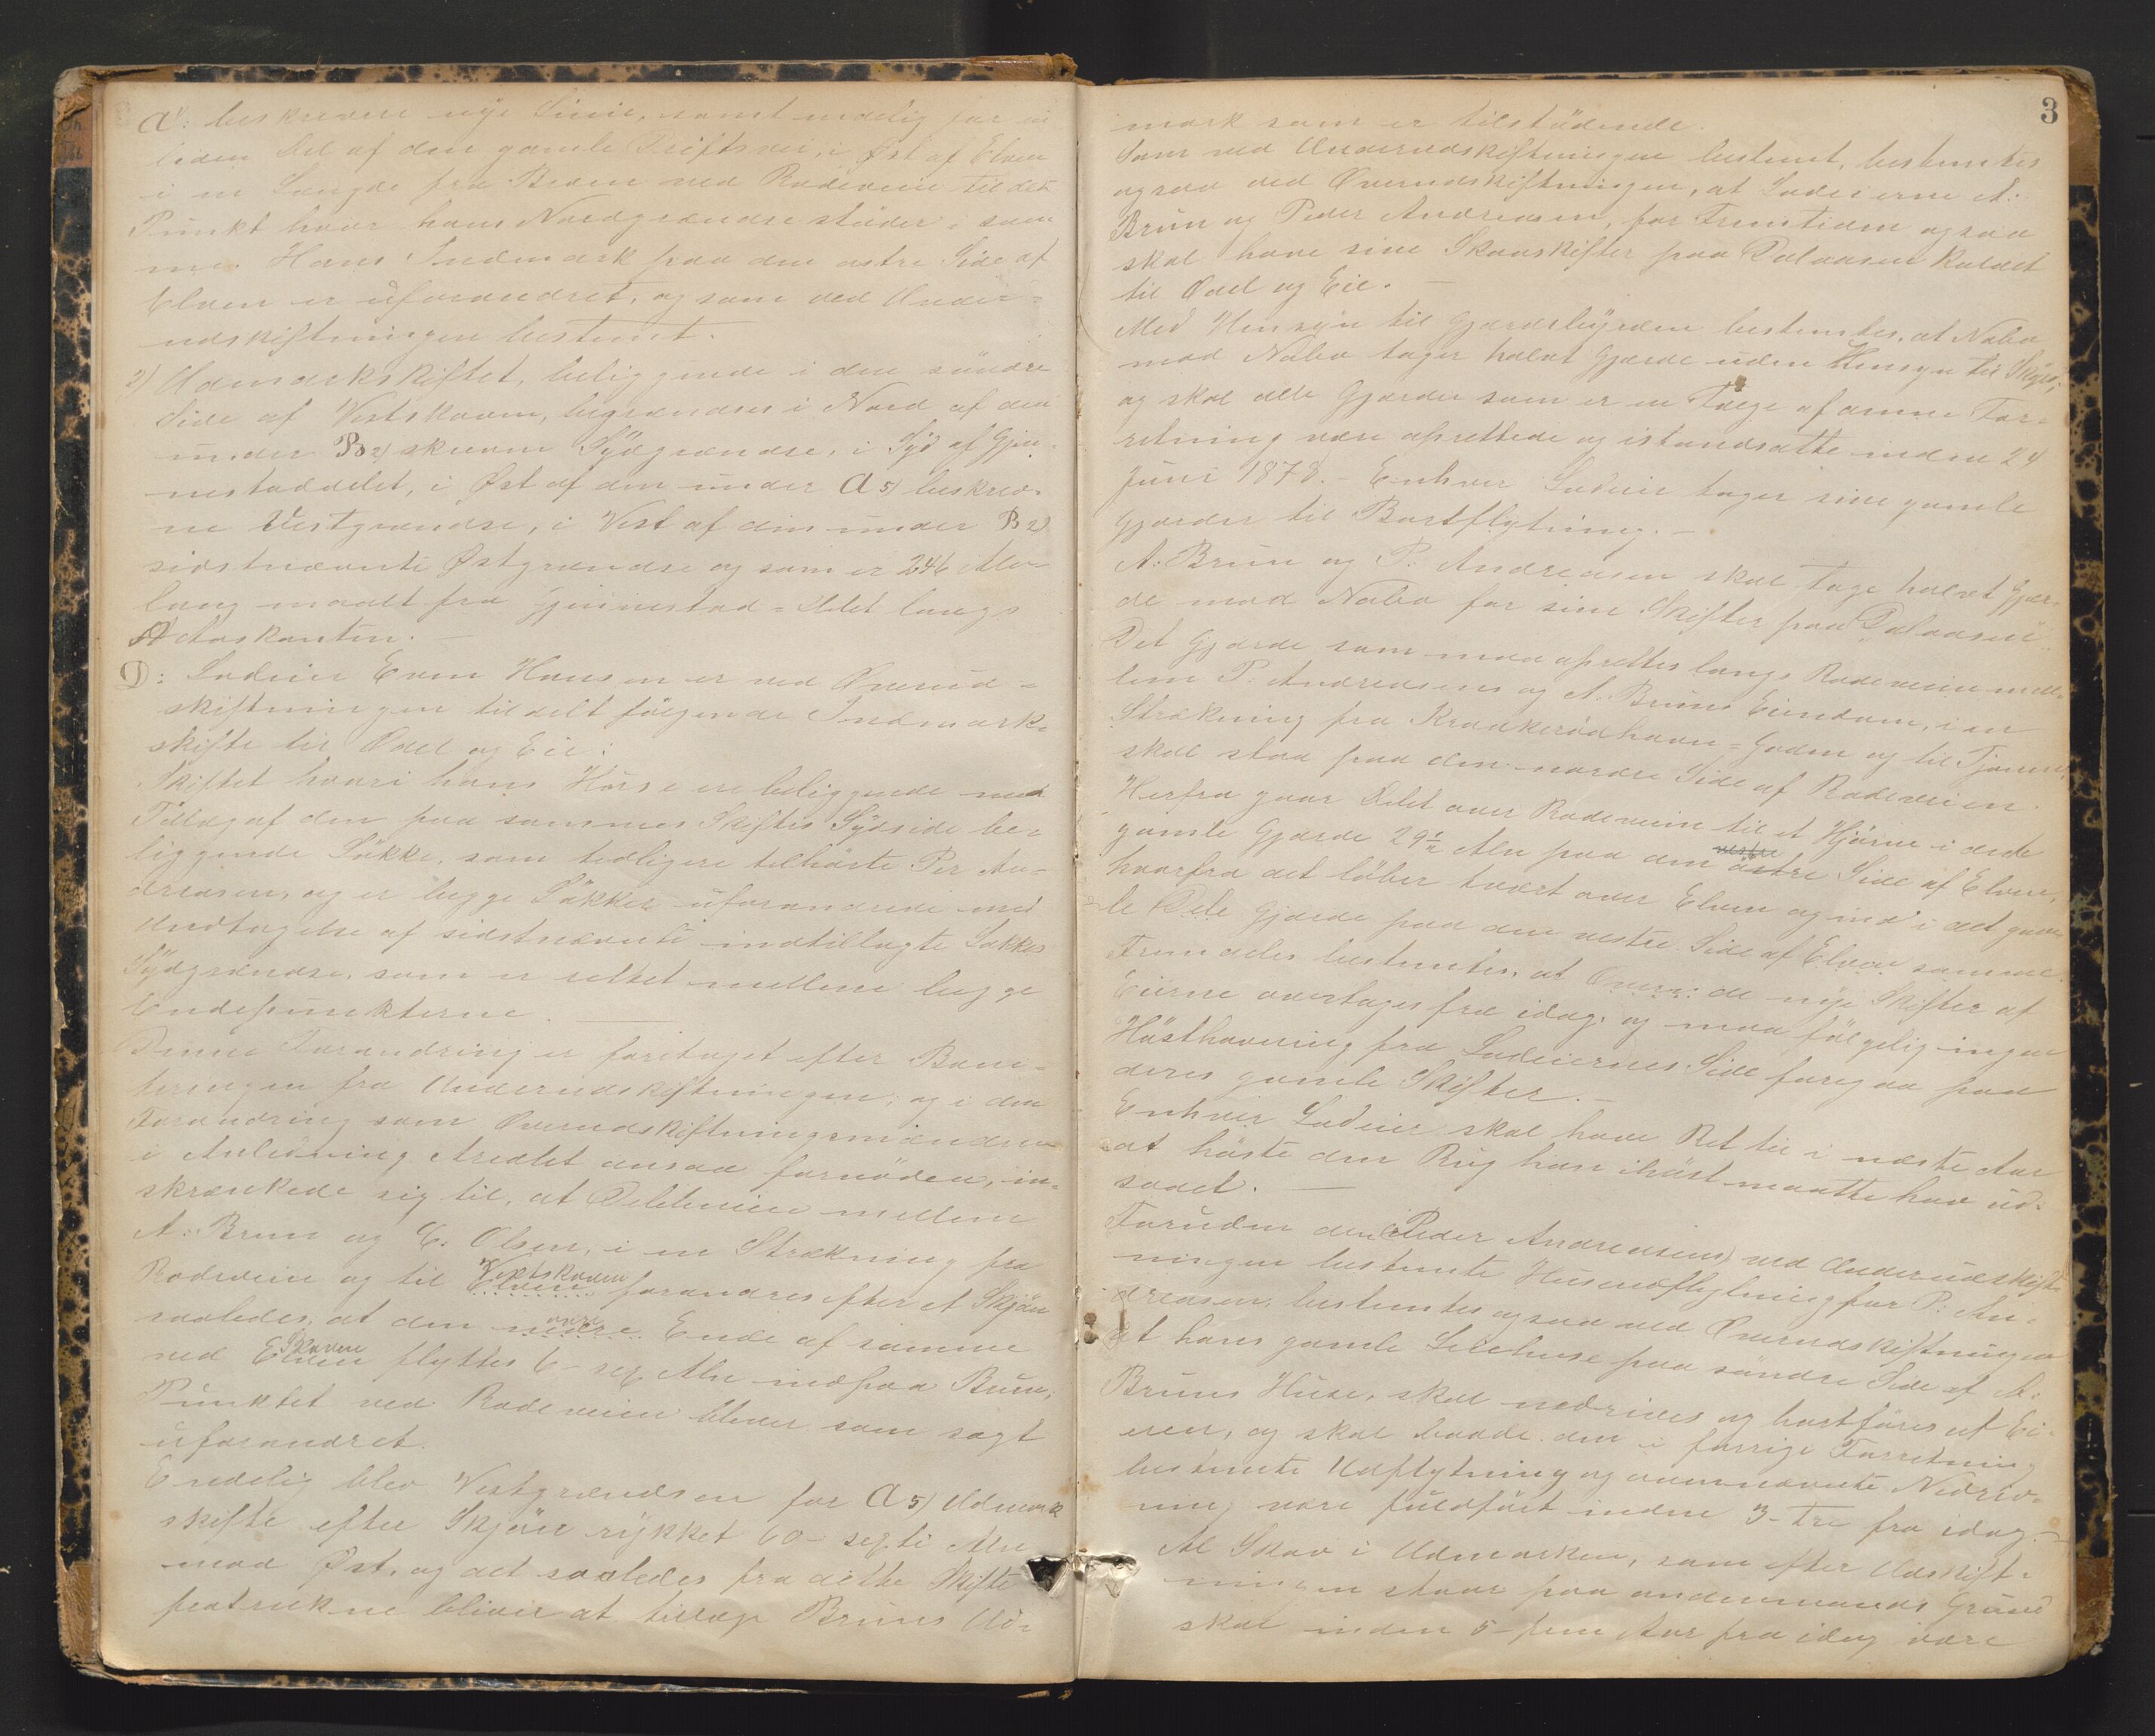 A: beskrevne nye Linie, samt endelig for en
liden Del af den gamle Driftsvei, i Øst af Elven
i en Længde fra Broen ved Rodeveien til det
Punkt hvor hans Nordgrændse stöder i sam-
me. Hans Indmark paa den østre Side af
Elven er uforandret, og som ved Under=
udskiftningen bestemt.
2) Udmarkskiftet, beliggende i den söndre
Side af Vestskoven, begrændses i Nord af den
under B 2) skrevne Sydgrændse, i Syd af Gjen-
nestaddelet, i Øst af den under A 5) beskrev-
ne Vestgrændse, i Vest af den under B 2)
sidstnævnte Østgrændse og som er 246 Alen
lang maalt fra Gjennestad=Delet langs
Aaskanten.
D: Lodeier Even Hansen er ved Overud=
skiftningen tildelt fölgende Indmark-
skifte til Odel og Eie:
Skiftet hvori hans Huse ere beliggende med
Tillæg af den paa sammes Skiftes Sydside be-
liggende Lökke, som tidligere tilhörte Per An-
dreasen, og er begge Lökker uforandrede med
Undtagelse af sidstnævnte indtillagte Lökkes
Sydgrændse, som er rettet mellem begge
Endepunkterne.
Denne Forandring er foretaget efter Boni-
teringen fra Underudskiftningen, og i den
Forandring som Overudskiftningsmændene
i Anledning Arealet ansaa fornöden, in-
skrænkede sig til, at Delelinien mellem
A: Brun og E. Olsen, i en Strækning fra
Vestskoven
Rodeveien og til Elven forandres efter et Skjön
övre
saaledes, at den nedre Ende af samme
Skoven
ved Elven flyttes 6 - sex Alen ind paa Brun,
Punktet ved Rodeveien bliver som sagt
uforandret.
Endelig blev Vestgrændsen for A 5) Udmark
skifte efter Skjön rykket 60 - sexti Alen
mod Øst, og det saaledes fra dette Skifte
fratrukne bliver at tillæge Bruns Ud-
3
mark som er tilstödende.
Som ved Underudskiftningen bestemt, bestemtes
ogsaa ved Overudskiftningen, at Lodeierne A:
Brun og Peder Andreasen, for Fremtiden ogsaa
skal have sine Skovskifter paa Dalaasen kaldet
til Odel og Eie.
Med Hensyn til Gjærdebyrden bestemtes, at Nabo
mod Nabo tager halvt Gjærde uden Hensyn til Skyld,
og skal alle Gjærder som er en Fölge af denne For-
retning være oprettede og istandsatte inden 24
Juni 1878. - Enhver Lodeier tager sine gamle
Gjærder til Bortflytning. -
A. Brun og P. Andreasen skal tage halvt Gjær-
de mod Nabo for sine Skifter paa "Dalaasen"
Det Gjærde som maa oprettes langs Rodeveien mel-
lem P. Andreasens og A. Bruns Eiendom, i en
Strækning fra Kraakerödhavn=Goden og til
skal staa paa den nordre Side af Rodeveien.
Herfra gaar Delet over Rodeveien til et Hjörne i dette
gamle Gjærde 29½ Alen paa den vestre östre Side af Elven,
hvorfra det löber tvært over Elven og ind i det gam-
le Dele Gjærde paa den vestre Side af Elven sammes.
Fremdeles bestemtes, at de nye Skifter af
Eierne overtages fra idag, og maa fölgelig ingen
Hösthavning fra Lodeiernes Side foregaa paa
deres gamle Skifter. -
Enhver Lodeier skal have Ret til i næste Aar
at höste den Rug han ihöst maatte have ud-
saaet.
Foruden den (Peder Andreasens) ved Underudskift-
ningen bestemte Husudflytning for P. An-
dreasen, bestemtes ogsaa ved Overudskiftningen
at hans gamle Lillehuse paa söndre Side af A.
Bruns Huse, skal nedrives og bortföres af Ei-
eren, og skal baade den i forrige Forretning
bestemte Udflytning og ovennævnte Nedriv-
ning være fuldfört inden 3 - Tre fra idag. -
Al Skov i Udmarken, som efter Udskift-
ningen staar paa andenmands Grund
skal inden 5 - fem Aar fra idag være